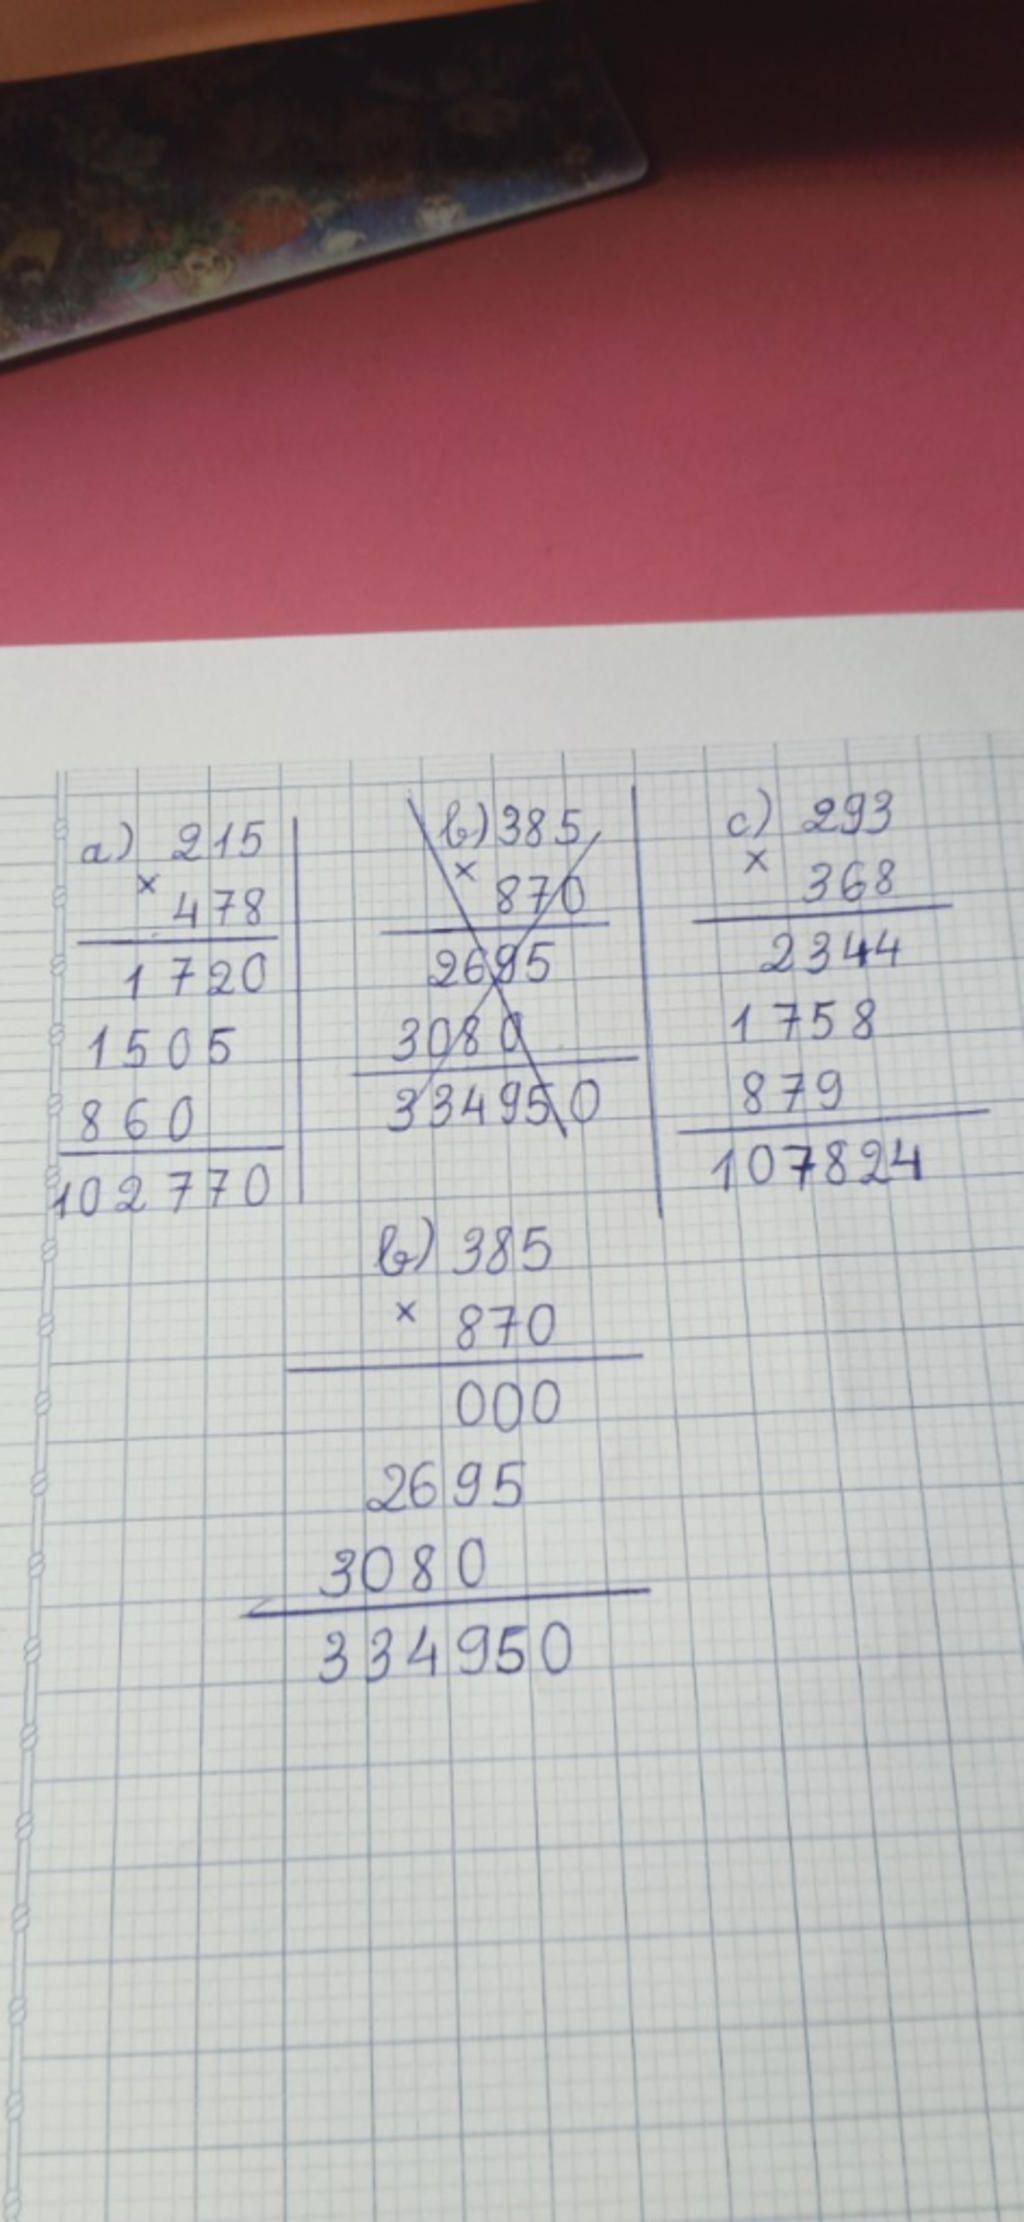 a) 215
× 478
1720
1505
860
102770
b) 385
× 870
2695
3080
334950
c) 293
× 368
2344
1758
879
107824
b) 385
× 870
000
2695
3080
334950